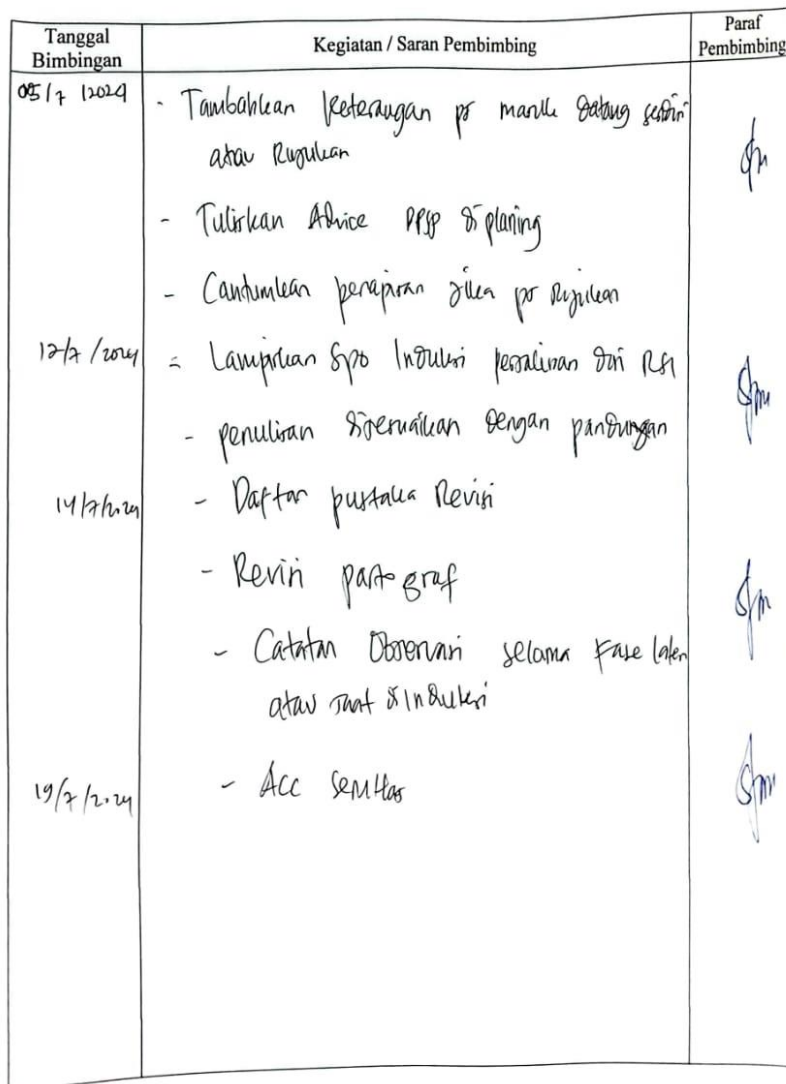 Tanggal Bimbingan
Kegiatan / Saran Pembimbing
Paraf Pembimbing
05/7 /2024
- Tambahkan keterangan ps masuk datang sendiri
atau Rujukan
- Tuliskan Advice DPJP di planing
- Cantumkan penapisan jika ps Rujukan
12/7 /2024
- Lampirkan Spo Induksi persalinan dari RSI
- penulisan disesuaikan dengan panduan
14/7/2024
- Daftar pustaka Revisi
- Revisi partograf
- Catatan Observasi selama Fase laten
atau saat di Induksi
19/7/2024
- Acc SemHas